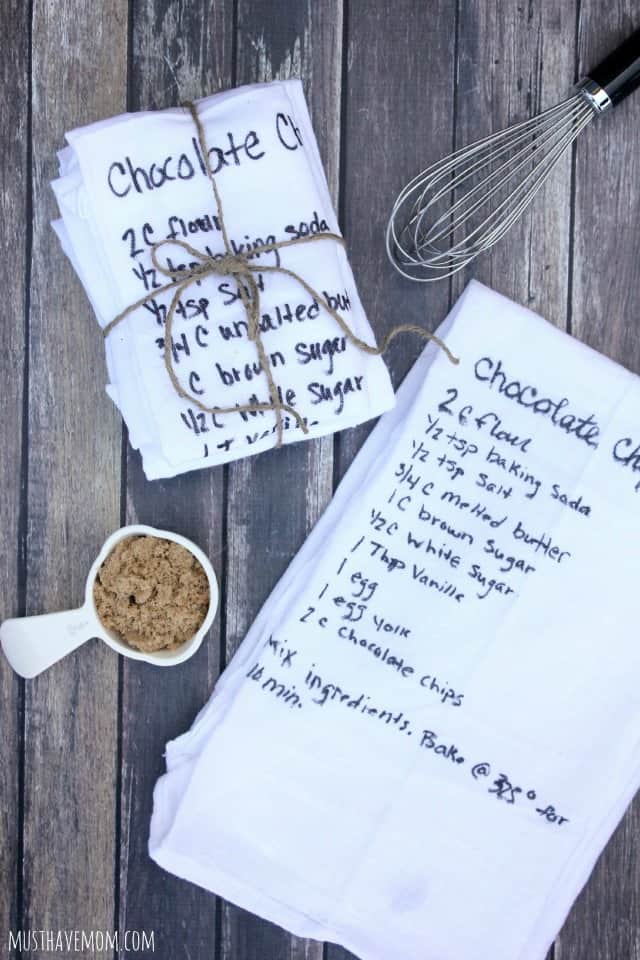 Chocolate C
2 C flour
1/2 tsp baking soda
1/2 tsp salt
3/4 C unsalted but
C brown sugar
1/2 C white sugar
1 T vanilla
Chocolate Ch
2 C flour
1/2 tsp baking soda
1/2 tsp salt
3/4 C melted butter
1 C brown sugar
1/2 C white sugar
1 Tbsp Vanilla
1 egg
1 egg yolk
2 C Chocolate chips
Mix ingredients. Bake @ 325° for
16 min.
MUSTHAVEMOM.COM